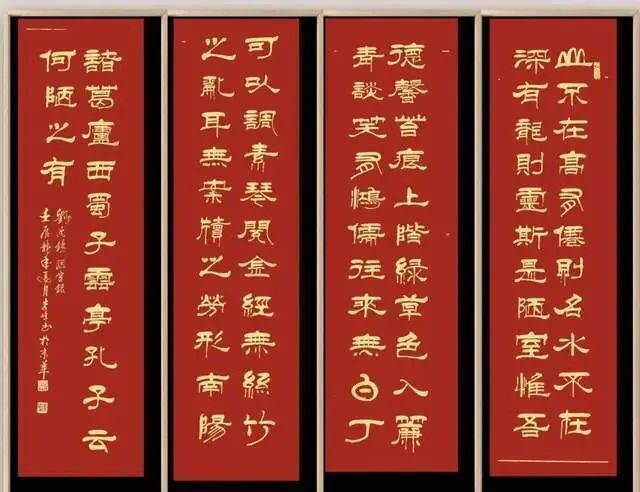 山不在高有僊則名水不在
深有龍則靈斯是陋室惟吾
德馨苔痕上階綠草色入簾
青談笑有鴻儒往來無白丁
可以調素琴閱金經無絲竹
之亂耳無案牘之勞形南陽
諸葛廬西蜀子雲亭孔子云
何陋之有
劉禹錫陋室銘
壬辰月書於京華